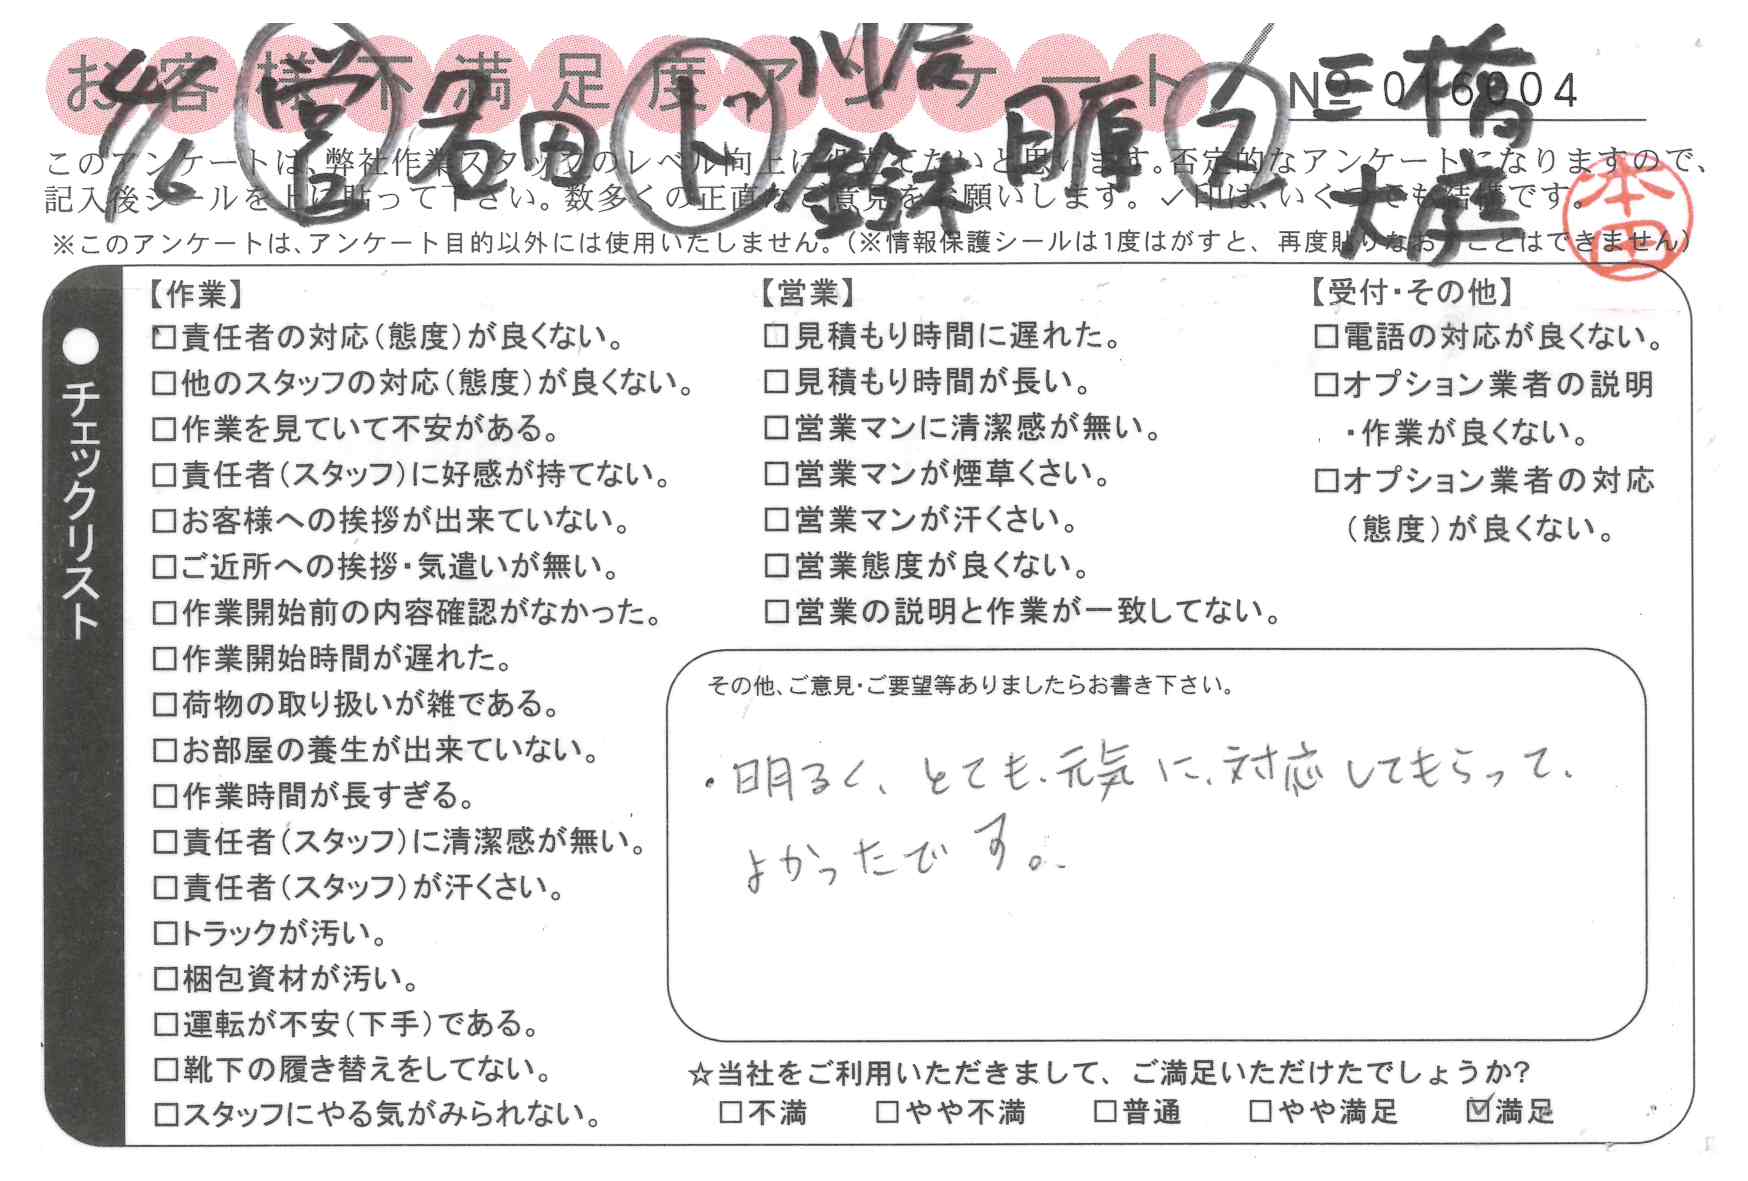 お客様不満足度アンケート
№ 016004
4/6 営 名田 ト 川合 鈴木 ラ 三橋 大庭
本田
このアンケートは、弊社作業スタッフのレベル向上に役立てたいと思います。否定的なアンケートになりますので、
記入後シールを上に貼って下さい。数多くの正直なご意見をお願いします。✓印は、いくつでも結構です。
※このアンケートは、アンケート目的以外には使用いたしません。(※情報保護シールは1度はがすと、再度貼りなおすことはできません)
●チェックリスト
【作業】
□責任者の対応(態度)が良くない。
□他のスタッフの対応(態度)が良くない。
□作業を見ていて不安がある。
□責任者(スタッフ)に好感が持てない。
□お客様への挨拶が出来ていない。
□ご近所への挨拶・気遣いが無い。
□作業開始前の内容確認がなかった。
□作業開始時間が遅れた。
□荷物の取り扱いが雑である。
□お部屋の養生が出来ていない。
□作業時間が長すぎる。
□責任者(スタッフ)に清潔感が無い。
□責任者(スタッフ)が汗くさい。
□トラックが汚い。
□梱包資材が汚い。
□運転が不安(下手)である。
□靴下の履き替えをしてない。
□スタッフにやる気がみられない。
【営業】
□見積もり時間に遅れた。
□見積もり時間が長い。
□営業マンに清潔感が無い。
□営業マンが煙草くさい。
□営業マンが汗くさい。
□営業態度が良くない。
□営業の説明と作業が一致してない。
【受付・その他】
□電話の対応が良くない。
□オプション業者の説明
・作業が良くない。
□オプション業者の対応
(態度)が良くない。
その他、ご意見・ご要望等ありましたらお書き下さい。
・明るく、とても元気に、対応してもらって、
よかったです。
☆当社をご利用いただきまして、ご満足いただけたでしょうか?
□不満 □やや不満 □普通 □やや満足 ☑満足